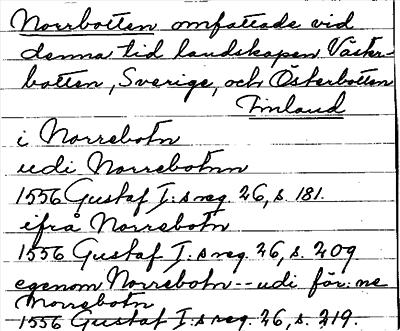 Norrbotten omfattade vid
denna tid landskapen Väster-
botten, Sverige, och Österbotten
Finland
i Norrebotn
udi Norrebotnn
1556 Gustaf I:s reg. 26, s. 181.
ifrå Norrebotn
1556 Gustaf I:s reg. 26, s. 209
egenom Norrebotn -- udi för:ne
Norrebotn
1556 Gustaf I:s reg. 26, s. 219.